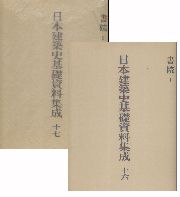 書院 I
日本建築史基礎資料集成
十七
書院 I
日本建築史基礎資料集成
十六